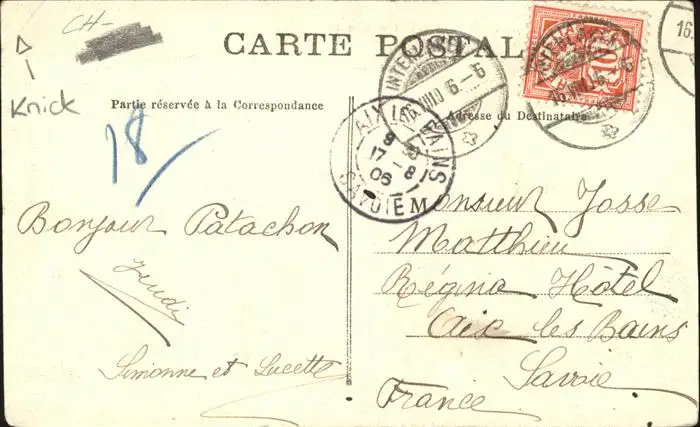 CH-
Knick
CARTE POSTALE
Partie réservée à la Correspondance
Adresse du Destinataire
18
AIX LES BAINS
9
17 - 8
06
SAVOIE
INTER
VIII 06 - 6
10
16
Bonjour Patachon
Jeudi
Simonne et Lucette
M
Monsieur Josse
Matthieu
Régina Hôtel
Aix les Bains
Savoie
France